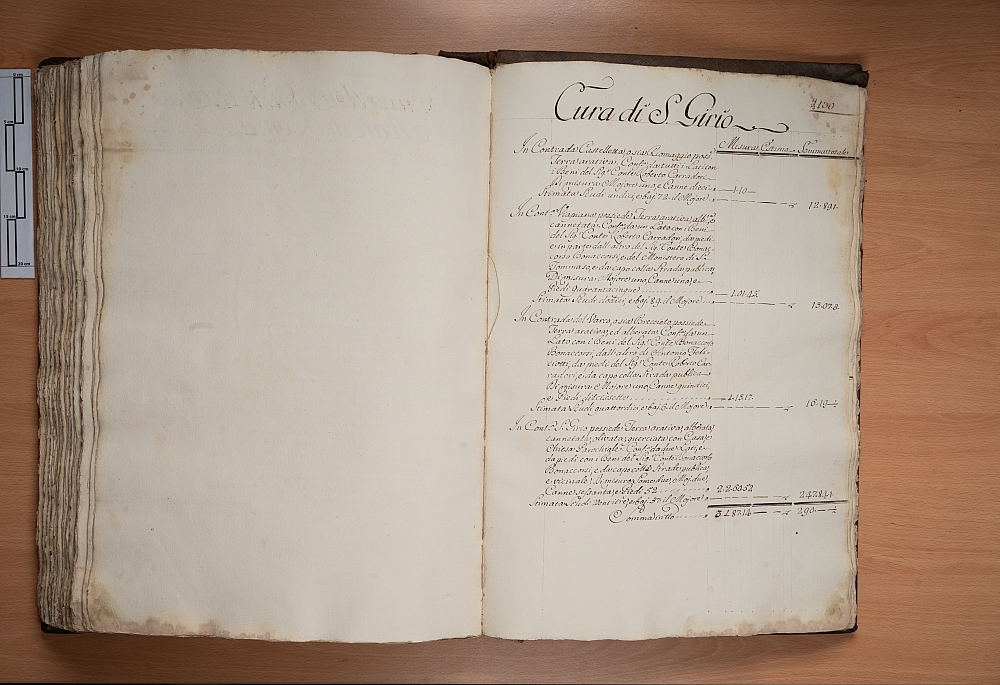 130
Cura di S. Girio
Misura Estimo Somma totale
In Contrada Castelletta, o sia Comaggio poss.
Terra arativa, Conf. da tutti i Lati con
i Beni del Sig. Conte Roberto Carradori
Di misura Mojore uno, e Canne dieci 1.10
Stimata Scudi undici, e baj. 72 il Mojore 12.891
In Cont. Viapiana possiede Terra arativa, alb.
cannetata, Conf. da un Lato con i beni
del Sig. Conte Roberto Carradori, da piedi
e in parte dall'altro del Sig. Conte Bonac-
corso Bonaccorsi, e del Monistero di S.
Tommaso, e da capo colla Strada publica
Di misura Mojore uno, Canne una, e
Piedi quarantacinque 1.01.45
Stimata Scudi dodici, e baj. 89 il Mojore 13.078
In Contrada del Varco, o sia Breccieto possiede
Terra arativa, ed alberata Conf. da un
Lato con i Beni del Sig. Conte Bonaccorso
Bonaccorsi, dall'altro di Antonio Feli-
ciotti, da piedi del Sig. Conte Roberto Car-
radori, e da capo colla Strada publica
Di misura Mojore uno, Canne quindici,
e Piedi diciessette 1.15.17
Stimata Scudi quattordici, e baj. 6 il Mojore 16.19
In Cont. S. Girio possiede Terra arativa, alberata
cannetata, olivata, querciata con Casa, e
Chiesa Parochiale Conf. da due Lati, e
da piedi con i Beni del Sig. Conte Bonaccorso
Bonaccorsi, e da capo colle Strade publica,
e vicinale, Di misura Some due, Moj. due,
Canne sessanta, e Piedi 52 2.2.60.52
Stimata Scudi ventitre, e baj. 37 il Mojore 247.841
Somma in tutto 290